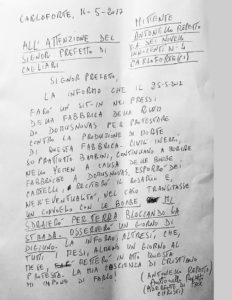 CARLOFORTE, 14-5-2017
MITTENTE
ANTONELLO REPETTO
V.A DEI NOVELLI
INNOCENTI N. 4
CARLOFORTE (CI)
ALL'ATTENZIONE DEL
SIGNOR PREFETTO DI
CAGLIARI
SIGNOR PREFETTO,
LA INFORMO CHE IL 25-5-2017
FARÒ UN SIT-IN NEI PRESSI
DELLA FABBRICA DELLA RWM
DI DOMUSNOVAS PER PROTESTARE
CONTRO LA PRODUZIONE DI MORTE
DI QUESTA FABBRICA. CIVILI INERMI,
SOPRATTUTTO BAMBINI, CONTINUANO A MORIRE
NELLO YEMEN A CAUSA DELLE BOMBE
FABBRICATE A DOMUSNOVAS. ESPORRÒ DEI
CARTELLI, RECITERÒ IL ROSARIO E,
NELL'EVENTUALITÀ, NEL CASO TRANSITASSE
UN CONVOGLIO CON LE BOMBE, MI
SDRAIERÒ PER TERRA BLOCCANDO LA
STRADA. OSSERVERÒ UN GIORNO DI
DIGIUNO. LA INFORMO, ALTRESÌ, CHE,
TUTTI I MESI, ALMENO UN GIORNO AL
MESE, RIPETERÒ IN MO QUESTA
PROTESTA. LA MIA COSCIENZA DI CRISTIANO
MI IMPONE DI FARLO!
(ANTONELLO REPETTO
ANTONELLO REPETTO
(ADERENTE DI PAX
CHRISTI)